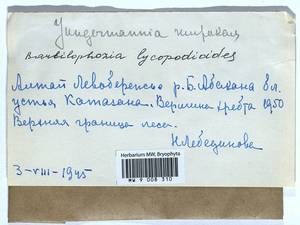 Jungermannia
Barbilophozia lycopodioides
Алтай Левобережье р. Б. Абакана бл.
устья Катагана. Вершина хребта 1950
Верхняя граница леса.
Н Лебединова
3-VIII-1945
Herbarium MW, Bryophyta
MW 9 008 310